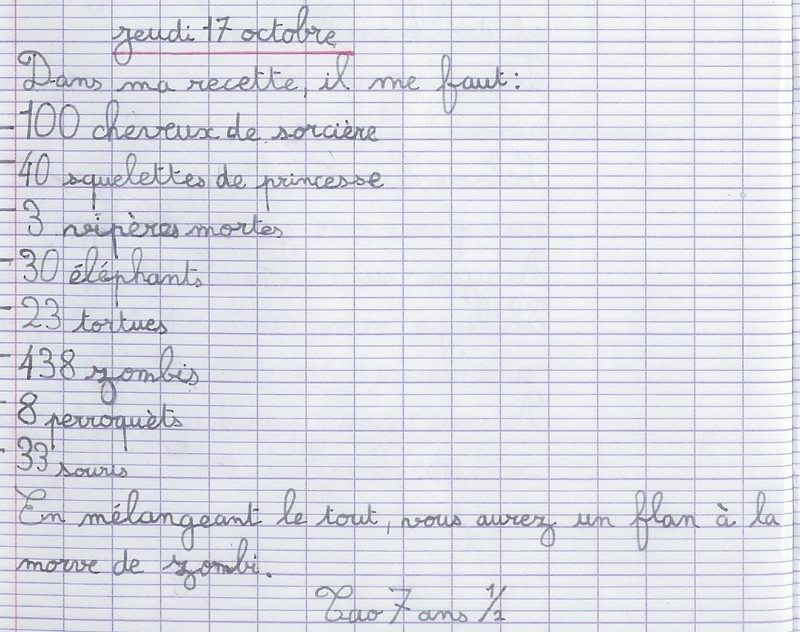 jeudi 17 octobre
Dans ma recette, il me faut :
- 100 cheveux de sorcière
- 40 squelettes de princesse
- 3 vipères mortes
- 30 éléphants
- 23 tortues
- 438 zombis
- 8 perroquèts
- 33 souris
En mélangeant le tout, vous aurez un flan à la
morve de zombi.
7 ans 1/2